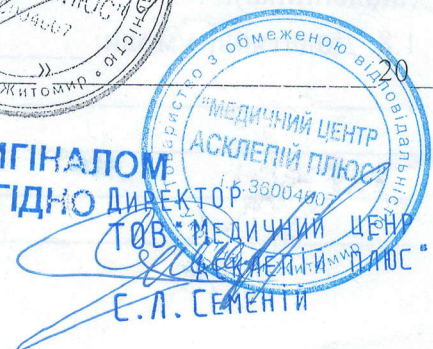 ПЛЮС"
Житомир
20
Товариство з обмеженою відповідальністю
"МЕДИЧНИЙ ЦЕНТР
АСКЛЕПІЙ ПЛЮС"
і.к.36004607
Житомир
ИГІНАЛОМ
ГІДНО
ДИРЕКТОР
ТОВ "МЕДИЧНИЙ ЦЕНР
АСКЛЕПІЙ ПЛЮС"
С.Л.СЕМЕНІЙ